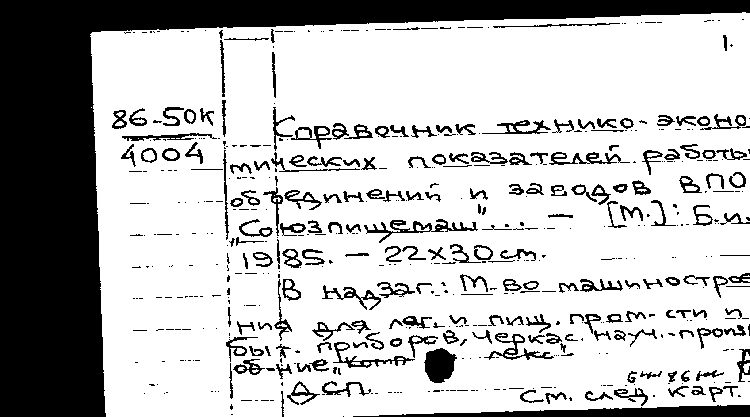 1.
86-50К
4004
Справочник технико-эконо-
мических показателей работы
объединений и заводов ВПО
"Союзпищемаш"... — [М.]: Б.и.
1985. — 22х30 см.
В надзаг.: М-во машинострое
ния для лег. и пищ. пром-сти и
быт. приборов, Черкас. науч.-произв
об-ние "Комплекс"
ДСП.
См. след. карт.